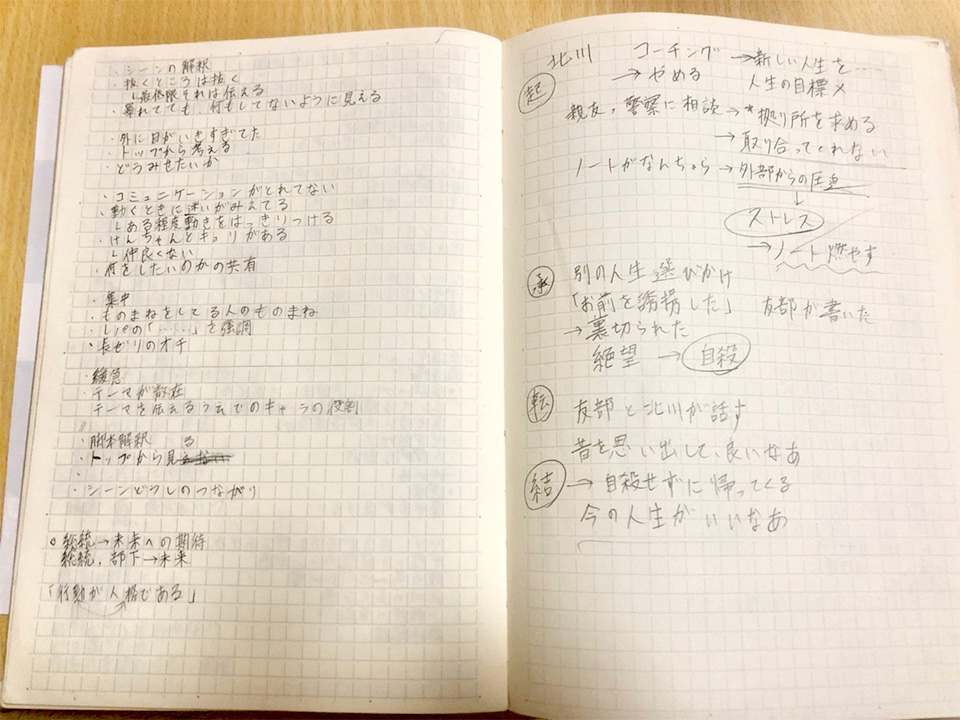 ・シーンの解釈
・抜くところは抜く
└最低限それは伝える
・暴れてても、何もしてないように見える
・外に目がいきすぎてた
・トップから考える
・どうみせたいか
・コミュニケーションがとれてない
・動くときに迷いがみえてる
└ある程度動きをはっきりつける
・けんちゃんとキョリがある
└仲良くない
・何をしたいのかの共有
・集中
・ものまねをしてる人のものまね
・レパの「……」を強調
・長ゼリのオチ
・緩急
・テーマが散在
テーマを伝えるうえでのキャラの役割
・脚本解釈 る
・トップから見
・シーンどうしのつながり
○総統→未来への期待
総統、部下→未来
「行動が人格である」
北川 コーチング →新しい人生を…
→やめる 人生の目標×
起
親友、警察に相談→*拠り所を求める
→取り合ってくれない
ノートがなんちゃら→外部からの圧迫
↓
ストレス
→ノート燃やす
承 別の人生選びかけ
「お前を誘拐した」 友部が書いた
→裏切られた
絶望 → 自殺
転 友部と北川が話す
昔を思い出して、良いなあ
結 → 自殺せずに帰ってくる
今の人生がいいなあ